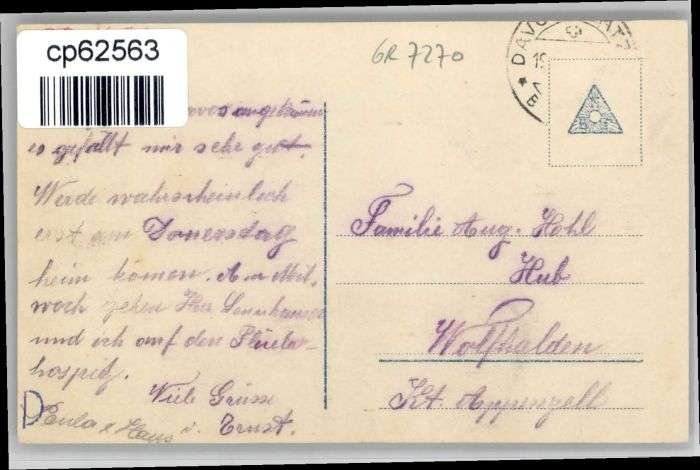 cp62563
GR 7270
DAVOS
es gefällt mir sehr gut.
Werde wahrscheinlich
erst am Donerstag
heim komen. Am Mit-
woch gehen Herr
und ich auf den Flüela-
hospitz.
Viele Grüsse
Paula & Hans u. Ernst.
Familie Aug. Hohl
Hub
Wolfhalden
Kt. Appenzell